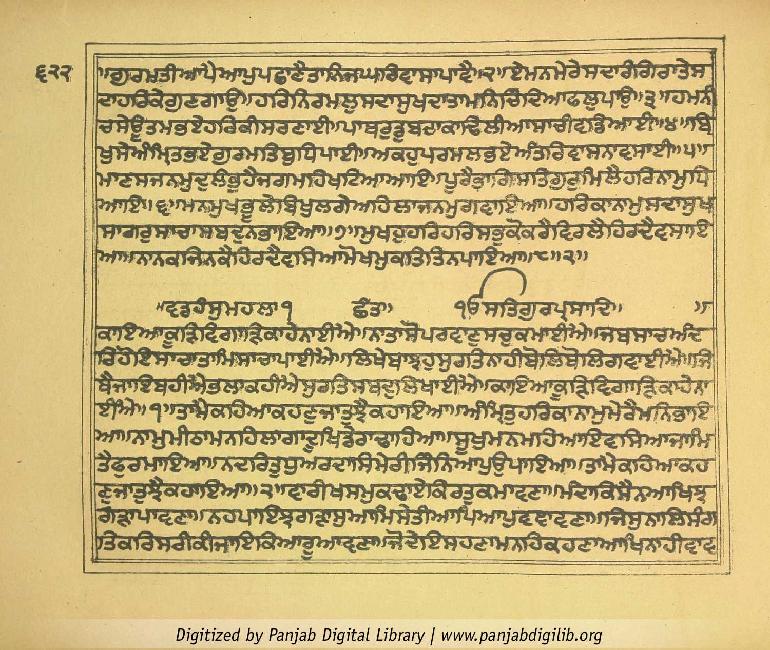 ੬੨੨
॥ਗੁਰਮਤੀਆਪੈਆਪੁਪਛਾਣੈਤਾਨਿਜਘਰਿਵਾਸਾਪਾਵੈ॥੨॥ਏਮਨਮੇਰੇਸਦਾਰੰਗਿਰਾਤੇਸ
ਦਾਹਰਿਕੇਗੁਣਗਾਉ॥ਹਰਿਨਿਰਮਲੁਸਦਾਸੁਖਦਾਤਾਮਨਿਚਿੰਦਿਆਫਲੁਪਾਉ॥੩॥ਹਮਨੀ
ਚਸੇਊਤਮਭਏਹਰਿਕੀਸਰਣਾਈ॥ਪਾਥਰੁਡੁਬਦਾਕਾਢਿਲੀਆਸਾਚੀਵਡਿਆਈ॥੪॥ਬਿ
ਖੁਸੇਅੰਮ੍ਰਿਤਭਏਗੁਰਮਤਿਬੁਧਿਪਾਈ॥ਅਕਹੁਪਰਮਲਭਏਅੰਤਰਿਵਾਸਨਾਵਸਾਈ॥੫॥
ਮਾਣਸਜਨਮੁਦੁਲੰਭੁਹੈਜਗਮਹਿਖਟਿਆਆਇ॥ਪੂਰੈਭਾਗਿਸਤਿਗੁਰੁਮਿਲੈਹਰਿਨਾਮੁਧਿ
ਆਇ॥੬॥ਮਨਮੁਖਭੂਲੇਬਿਖੁਲਗੇਅਹਿਲਾਜਨਮੁਗਵਾਇਆ॥ਹਰਿਕਾਨਾਮੁਸਦਾਸੁਖ
ਸਾਗਰੁਸਾਚਾਸਬਦੁਨਭਾਇਆ॥੭॥ਮੁਖਹੁਹਰਿਹਰਿਸਭੁਕੋਕਰੈਵਿਰਲੈਹਿਰਦੈਵਸਾਇ
ਆ॥ਨਾਨਕਜਿਨਕੈਹਿਰਦੈਵਸਿਆਮੋਖਮੁਕਤਿਤਿਨਪਾਇਆ॥੮॥੨॥
॥ਵਡਹੰਸੁਮਹਲਾ੧ ਛੰਤ॥ ੴਸਤਿਗੁਰਪ੍ਰਸਾਦਿ॥ ॥
ਕਾਇਆਕੂੜਿਵਿਗਾੜਿਕਾਹੇਨਾਈਐ॥ਨਾਤਾਸੋਪਰਵਾਣੁਸਚੁਕਮਾਈਐ॥ਜਬਸਾਚਅੰਦ
ਰਿਹੋਇਸਾਚਾਤਾਮਿਸਾਚਾਪਾਈਐ॥ਲਿਖੇਬਾਝਹੁਸੁਰਤਿਨਾਹੀਬੋਲਿਬੋਲਿਗਵਾਈਐ॥ਜਿ
ਥੈਜਾਇਬਹੀਐਭਲਾਕਹੀਐਸੁਰਤਿਸਬਦੁਲਿਖਾਈਐ॥ਕਾਇਆਕੂੜਿਵਿਗਾੜਿਕਾਹੇਨਾ
ਈਐ॥੧॥ਤਾਮੈਕਹਿਆਕਹਣੁਜਾਤੁਝੈਕਹਾਇਆ॥ਅੰਮ੍ਰਿਤੁਹਰਿਕਾਨਾਮੁਮੇਰੈਮਨਿਭਾਇ
ਆ॥ਨਾਮੁਮੀਠਾਮਨਹਿਲਾਗਾਦੂਖਿਡੇਰਾਢਾਹਿਆ॥ਸੂਖੁਮਨਮਹਿਆਇਵਸਿਆਜਾਮਿ
ਤੈਫੁਰਮਾਇਆ॥ਨਦਰਿਤੁਧੁਅਰਦਾਸਿਮੇਰੀਜਿੰਨਿਆਪੁਉਪਾਇਆ॥ਤਾਮੈਕਹਿਆਕਹ
ਣੁਜਾਤੁਝੈਕਹਾਇਆ॥੨॥ਵਾਰੀਖਸਮੁਕਢਾਏਕਿਰਤੁਕਮਾਵਣਾ॥ਮੰਦਾਕਿਸੈਨਆਖਿਝ
ਗੜਾਪਾਵਣਾ॥ਨਹਪਾਇਝਗੜਾਸੁਆਮਿਸੇਤੀਆਪਿਆਪੁਵਞਾਵਣਾ॥ਜਿਸੁਨਾਲਿਸੰਗ
ਤਿਕਰਿਸਰੀਕੀਜਾਇਕਿਆਰੂਆਵਣਾ॥ਜੋਦੇਇਸਹਣਾਮਨਹਿਕਹਣਾਆਖਿਨਾਹੀਵਾਵ
Digitized by Panjab Digital Library | www.panjabdigilib.org